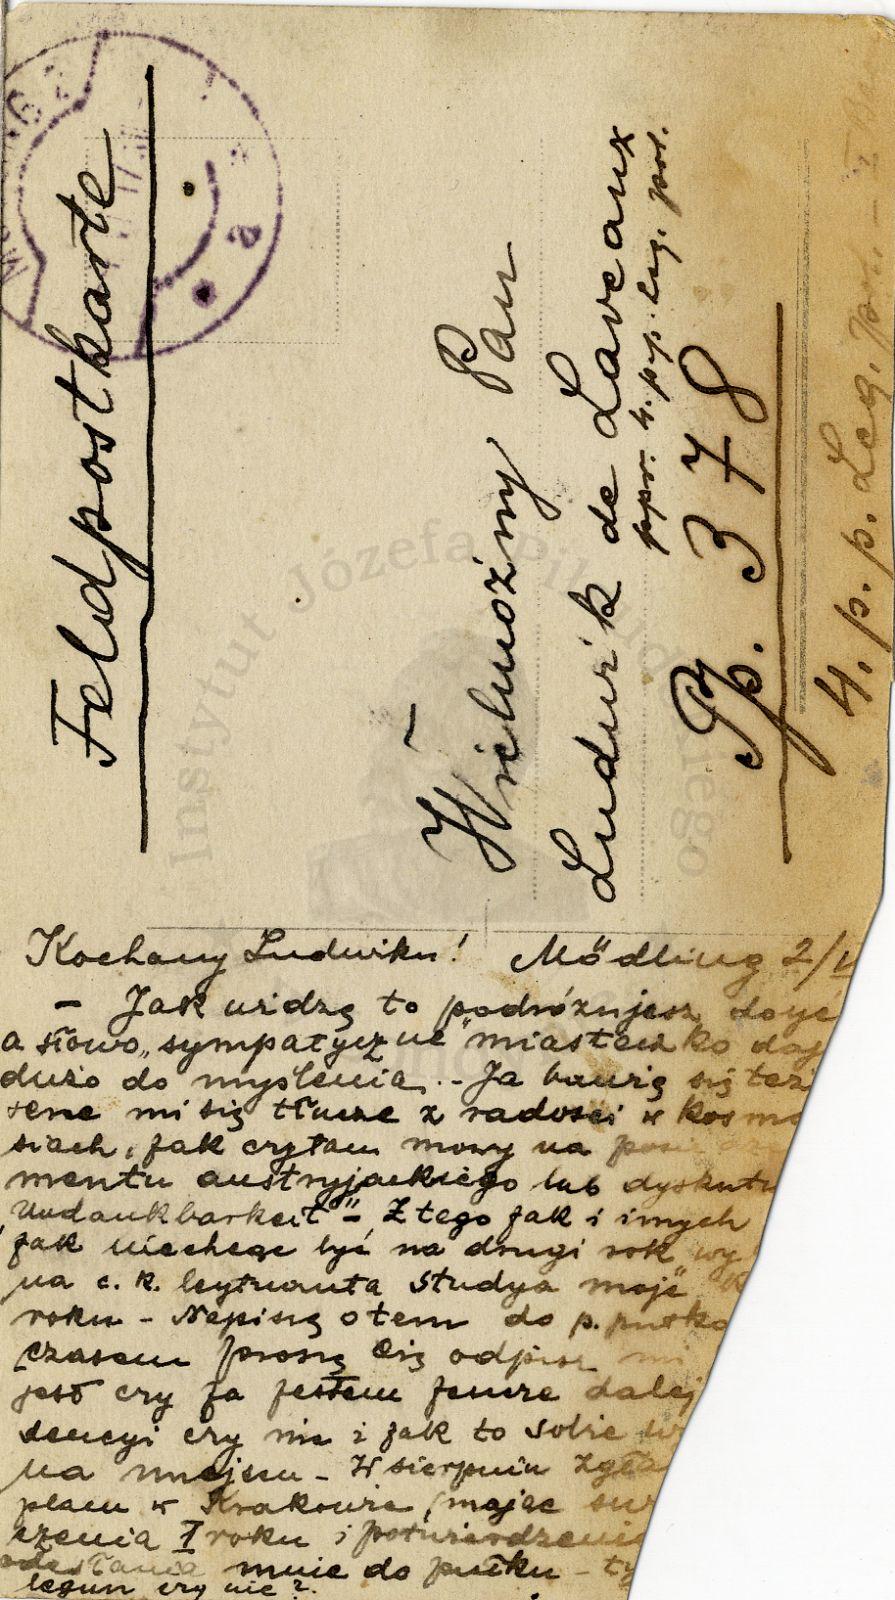 Feldpostkarte
Wielmożny Pan
Ludwik de Laveaux
ppr. 4. p.p. leg. pol.
Pp. 378
4. p. p. Leg. pol. —
Instytut Józefa Piłsudskiego
Kochany Ludwiku! Mödling 2/
— Jak widzę to podróżujesz dość
a słowo „sympatyczne" miasteczko daj
dużo do myślenia. - Ja bawię się też
serce mi się tłucze z radości w
siach, jak czytam mowy na
mentu austryjackiego lub dyskutu
„Undankbarkeit" — Z tego jak i innych
jak niechcąc być na drugi rok wy
na c. k. leytnanta studya moje
roku - Napiszę o tem do p.
czasem proszę Cię odpisz mi
jest czy ja jestem jeszcze dalej
dencyi czy nie i jak to sobie
na miejscu - W sierpniu zgła
placu w Krakowie (mając
czenia I roku i potwierdzenie
odesłania mnie do pułku - ty
legun czy nie?